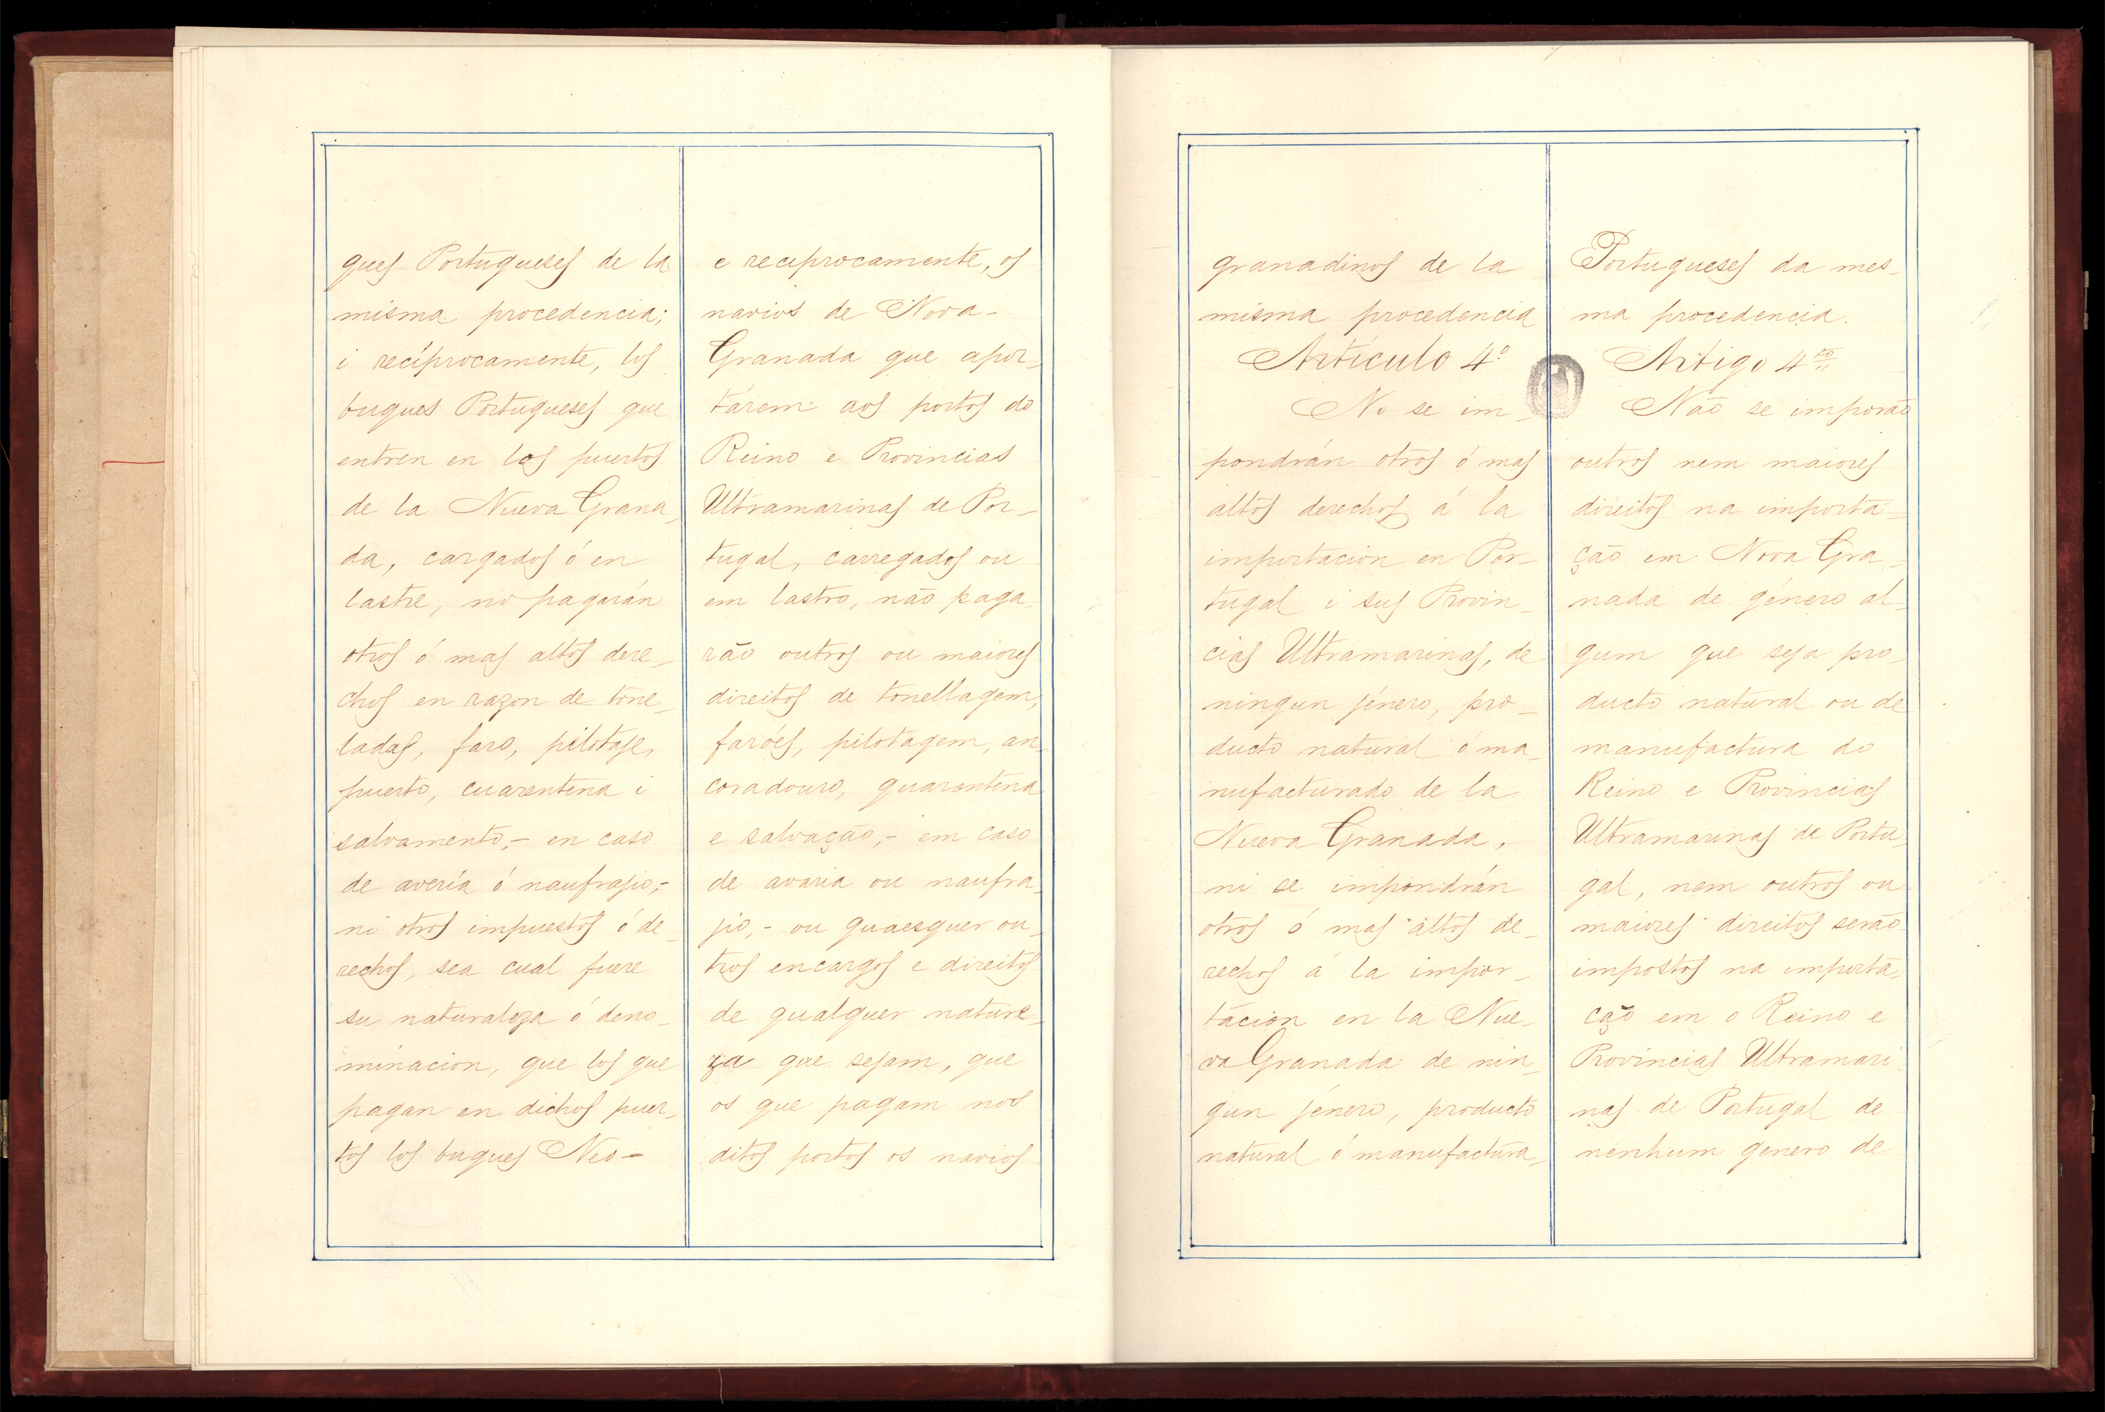 ques Portugueses de la
misma procedencia;
i recíprocamente, los
buques Portugueses que
entren en los puertos
de la Nueva Grana_
da, cargados ó en
lastre, no pagarán
otros ó mas altos dere_
chos en razon de tone_
ladas, faro, pilotaje,
puerto, cuarentena i
salvamento,- en caso
de avería ó naufrajio,-
ni otros impuestos ó de_
rechos, sea cual fuere
su naturaleza ó deno_
minacion, que los que
pagan en dichos puer_
tos los buques Neo-
e reciprocamente, os
navios de Nova-
Granada que apor_
tárem aos portos do
Reino e Provincias
Ultramarinas de Por_
tugal, carregados ou
em lastro, não paga_
rão outros ou maiores
direitos de tonellagem,
faróes, pilotagem, an_
coradouro, quarentena
e salvação,- em caso
de avaria ou naufra_
jio,- ou quaesquer ou_
tros encargos e direitos
de qualquer nature_
za que sejam, que
os que pagam nos
ditos portos os navios
granadinos de la
misma procedencia
Artículo 4º
No se im_
pondrán otros ó mas
altos derechos á la
importacion en Por_
tugal i sus Provin_
cias Ultramarinas, de
ningun jénero, pro_
ducto natural ó ma_
nufacturado de la
Nueva Granada,
ni se impondrán
otros ó mas altos de_
rechos á la impor_
tacion en la Nue_
va Granada de nin_
gun jénero, producto
natural ó manufactura_
Portugueses da mes_
ma procedencia.
Artigo 4to
Não se imporão
outros nem maiores
direitos na importa_
ção em Nova Gra_
nada de género al_
gum que seja pro_
ducto natural ou de
manufactura do
Reino e Provincias
Ultramarinas de Portu_
gal, nem outros ou
maiores direitos serão
impostos na importa_
ção em o Reino e
Provincias Ultramari_
nas de Portugal de
nenhum genero de